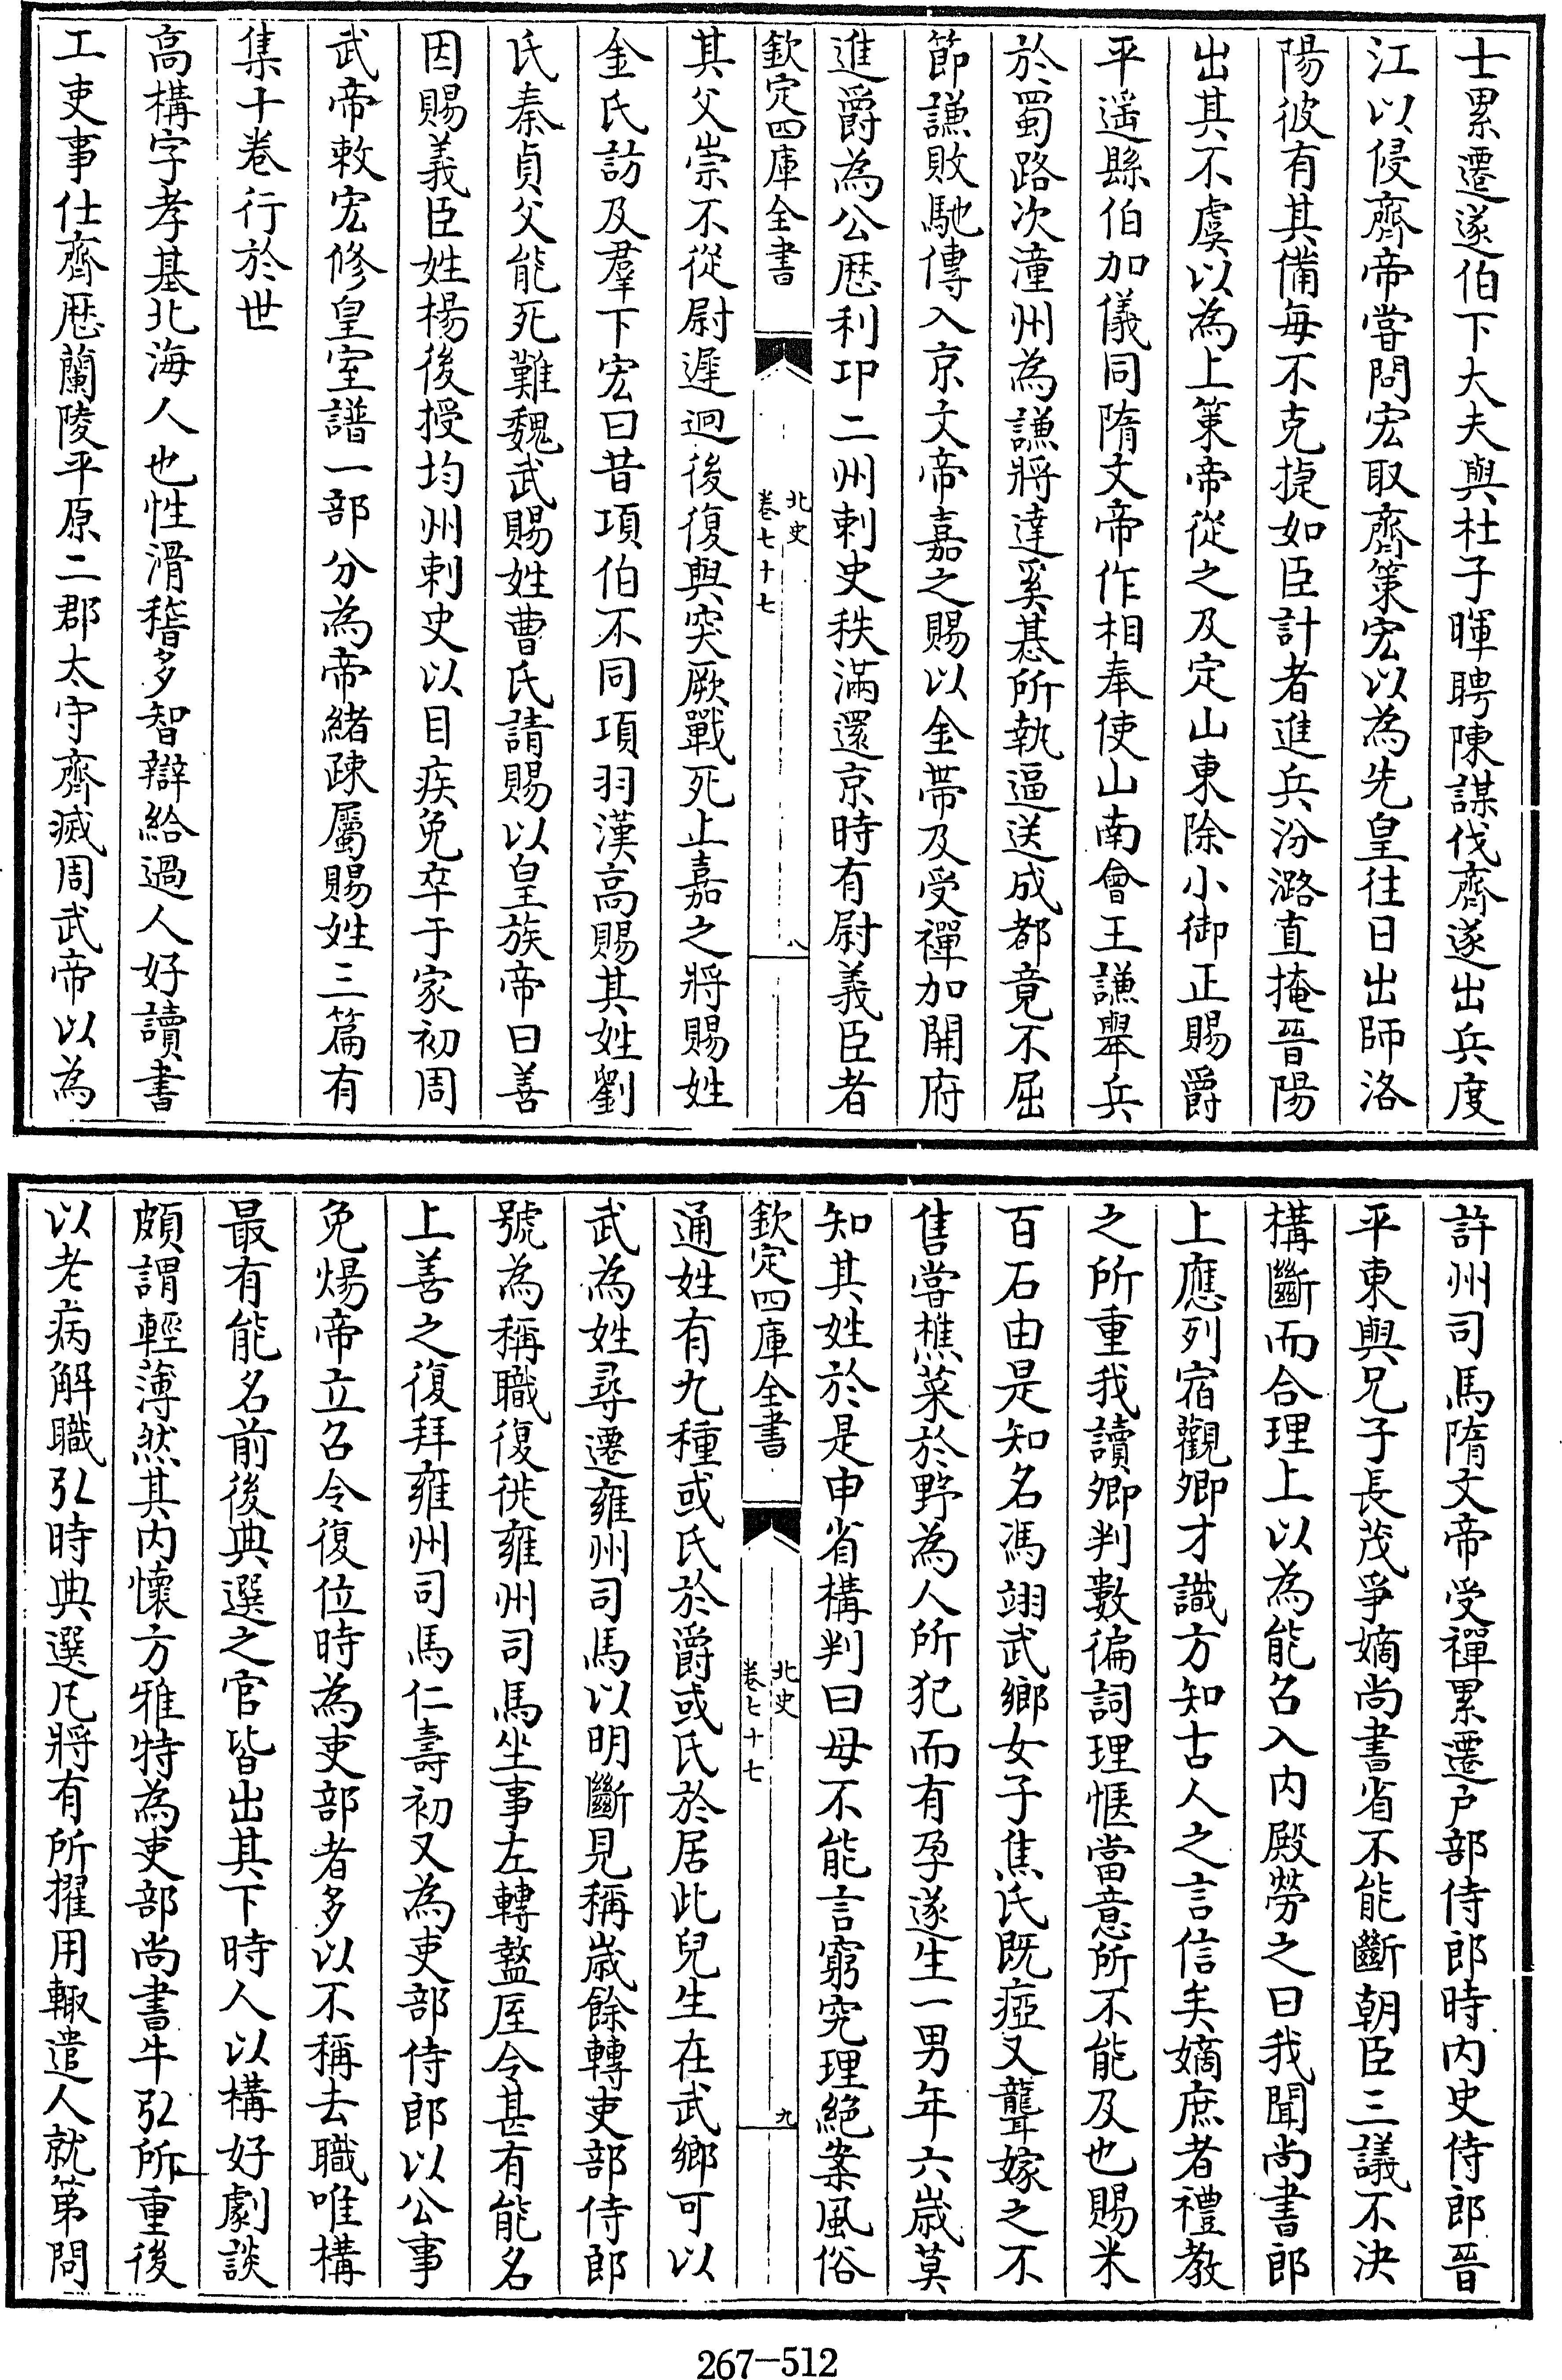 士累遷遂伯下大夫與杜子暉聘陳謀伐齊遂出兵度
江以侵齊帝嘗問宏取齊策宏以為先皇往日出師洛
陽彼有其備每不克捷如臣計者進兵汾潞直掩晉陽
出其不虞以為上策帝從之及定山東除小御正賜爵
平遥縣伯加儀同隋文帝作相奉使山南會王謙舉兵
於蜀路次潼州為謙將達奚惎所執逼送成都竟不屈
節謙敗馳傳入京文帝嘉之賜以金帶及受禪加開府
進爵為公歴利卭二州刺史秩滿還京時有尉義臣者
欽定四庫全書
北史
卷七十七
八
其父崇不從尉遲迥後復與突厥戰死止嘉之將賜姓
金氏訪及羣下宏曰昔項伯不同項羽漢高賜其姓劉
氏秦貞父能死難魏武賜姓曹氏請賜以皇族帝曰善
因賜義臣姓楊後授均州刺史以目疾免卒于家初周
武帝敕宏修皇室譜一部分為帝緒疎屬賜姓三篇有
集十卷行於世
高構字孝基北海人也性滑稽多智辯給過人好讀書
工吏事仕齊歴蘭陵平原二郡太守齊滅周武帝以為
許州司馬隋文帝受禪累遷户部侍郎時内史侍郎晉
平東與兄子長茂爭嫡尚書省不能斷朝臣三議不決
構斷而合理上以為能召入内殿勞之曰我聞尚書郎
上應列宿觀卿才識方知古人之言信矣嫡庶者禮教
之所重我讀卿判數徧詞理愜當意所不能及也賜米
百石由是知名馮翊武鄉女子焦氏既瘂又聾嫁之不
售嘗樵菜於野為人所犯而有孕遂生一男年六歲莫
知其姓於是申省構判曰母不能言窮究理絶案風俗
欽定四庫全書
北史
卷七十七
九
通姓有九種或氏於爵或氏於居此兒生在武鄉可以
武為姓尋遷雍州司馬以明斷見稱歲餘轉吏部侍郎
號為稱職復徙雍州司馬坐事左轉盩厔令甚有能名
上善之復拜雍州司馬仁壽初又為吏部侍郎以公事
免煬帝立召令復位時為吏部者多以不稱去職唯構
最有能名前後典選之官皆出其下時人以構好劇談
頗謂輕薄然其内懷方雅特為吏部尚書牛弘所重後
以老病解職弘時典選凡將有所擢用輙遣人就第問
267-512